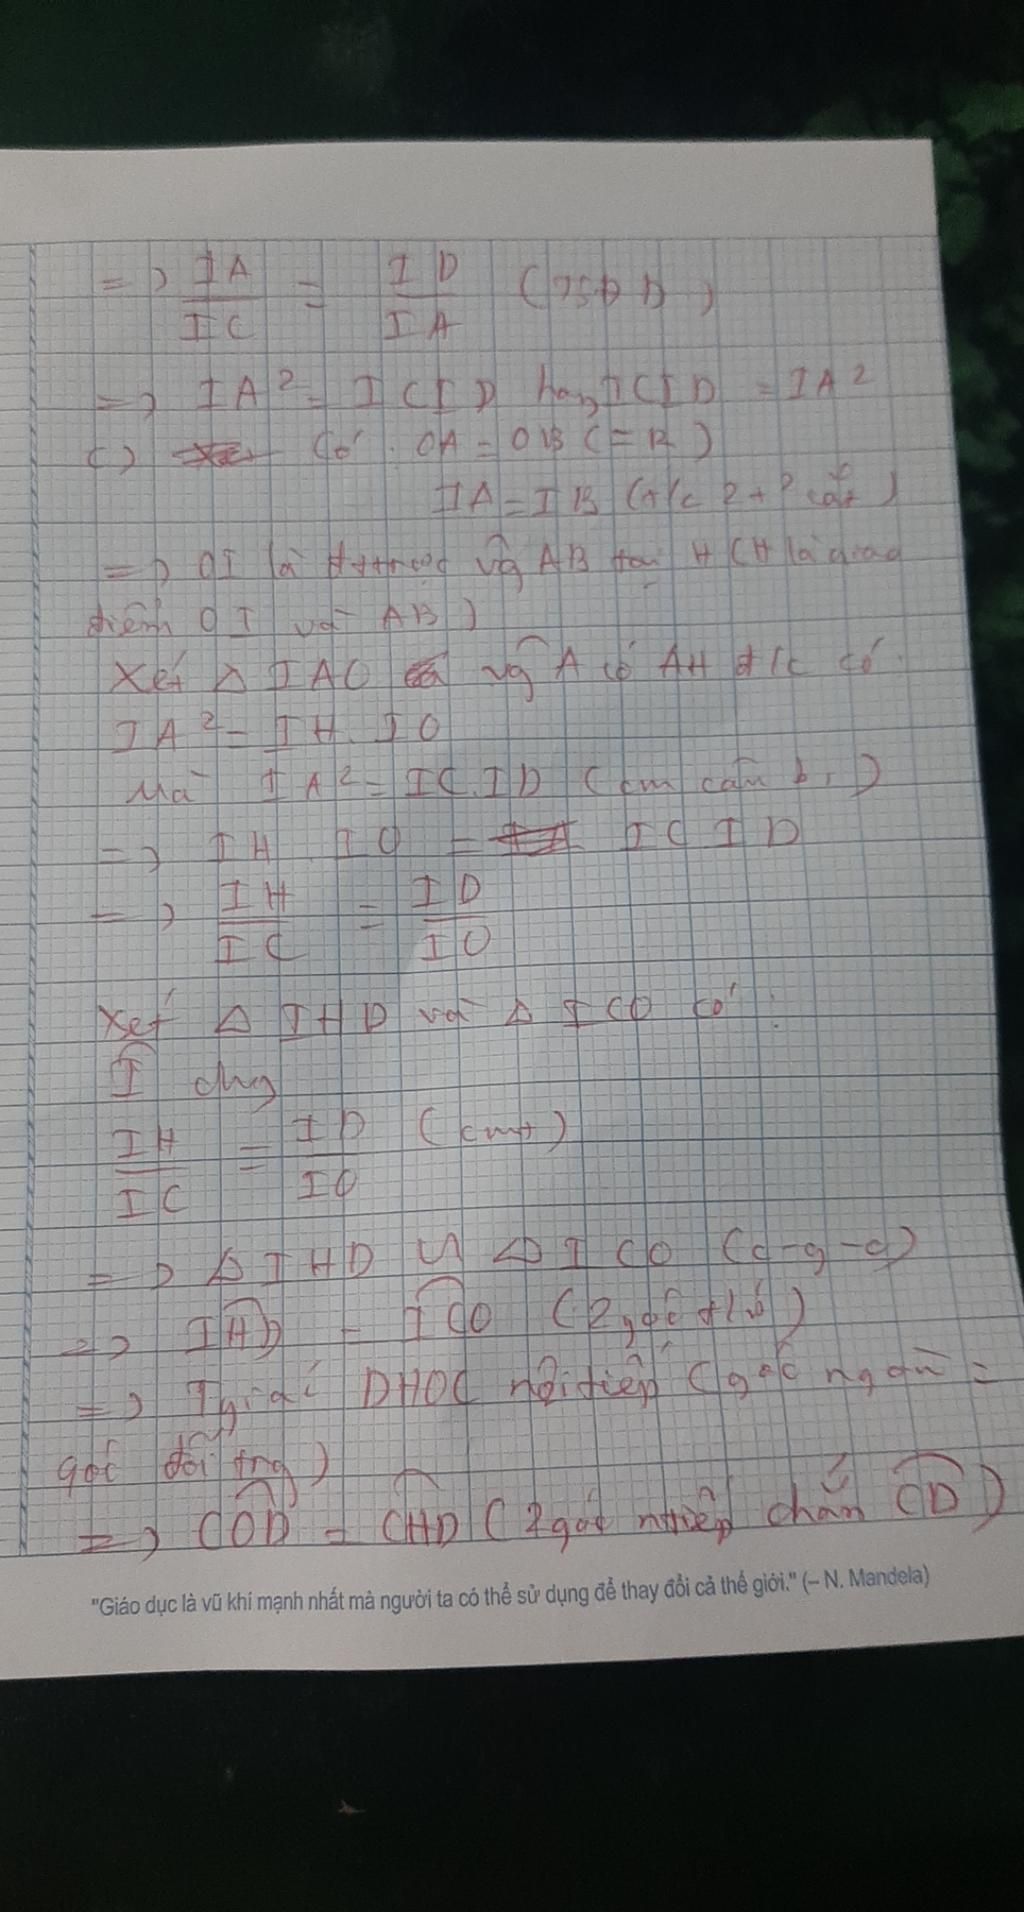 => IA/IC = ID/IA (TSĐD)
=> IA² = IC.ID hay IC.ID = IA²
c) Có: OA = OB (= R)
IA = IB (t/c 2 t² cắt)
=> OI là đttrực vg AB tại H (H là giao
điểm OI và AB)
Xét △ IAO vg A có AH đ/c có:
IA² = IH.IO
Mà IA² = IC.ID (cm câu b,)
=> IH.IO = IC.ID
=> IH/IC = ID/IO
Xét △ IHD và △ ICO có:
I chg
IH/IC = ID/IO (cmt)
=> △ IHD ∽ △ ICO (c-g-c)
=> IHD = ICO (2 góc t/ứ)
=> Tgiác DHOC nội tiếp (góc ngoài =
góc đối trg)
=> COD = CHD (2 góc ntiếp chắn CD)
"Giáo dục là vũ khí mạnh nhất mà người ta có thể sử dụng để thay đổi cả thế giới." (– N. Mandela)